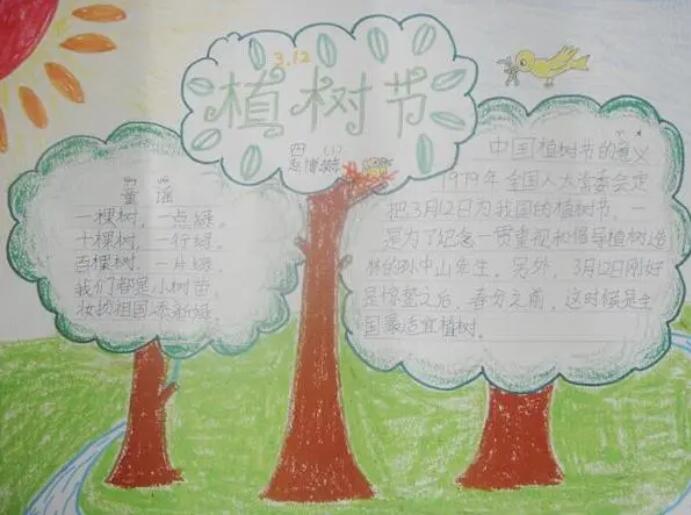 3.12
植树节
四(1)
童谣
一棵树，一点绿。
十棵树，一行绿。
百棵树，一片绿。
我们都是小树苗，
妆扮祖国添新绿。
中国植树节的意义
1979年全国人大常委会定
把3月12日为我国的植树节，一
是为了纪念一贯重视和倡导植树造
林的孙中山先生。另外，3月12日刚好
是惊蛰之后，春分之前，这时候是全
国最适宜植树。